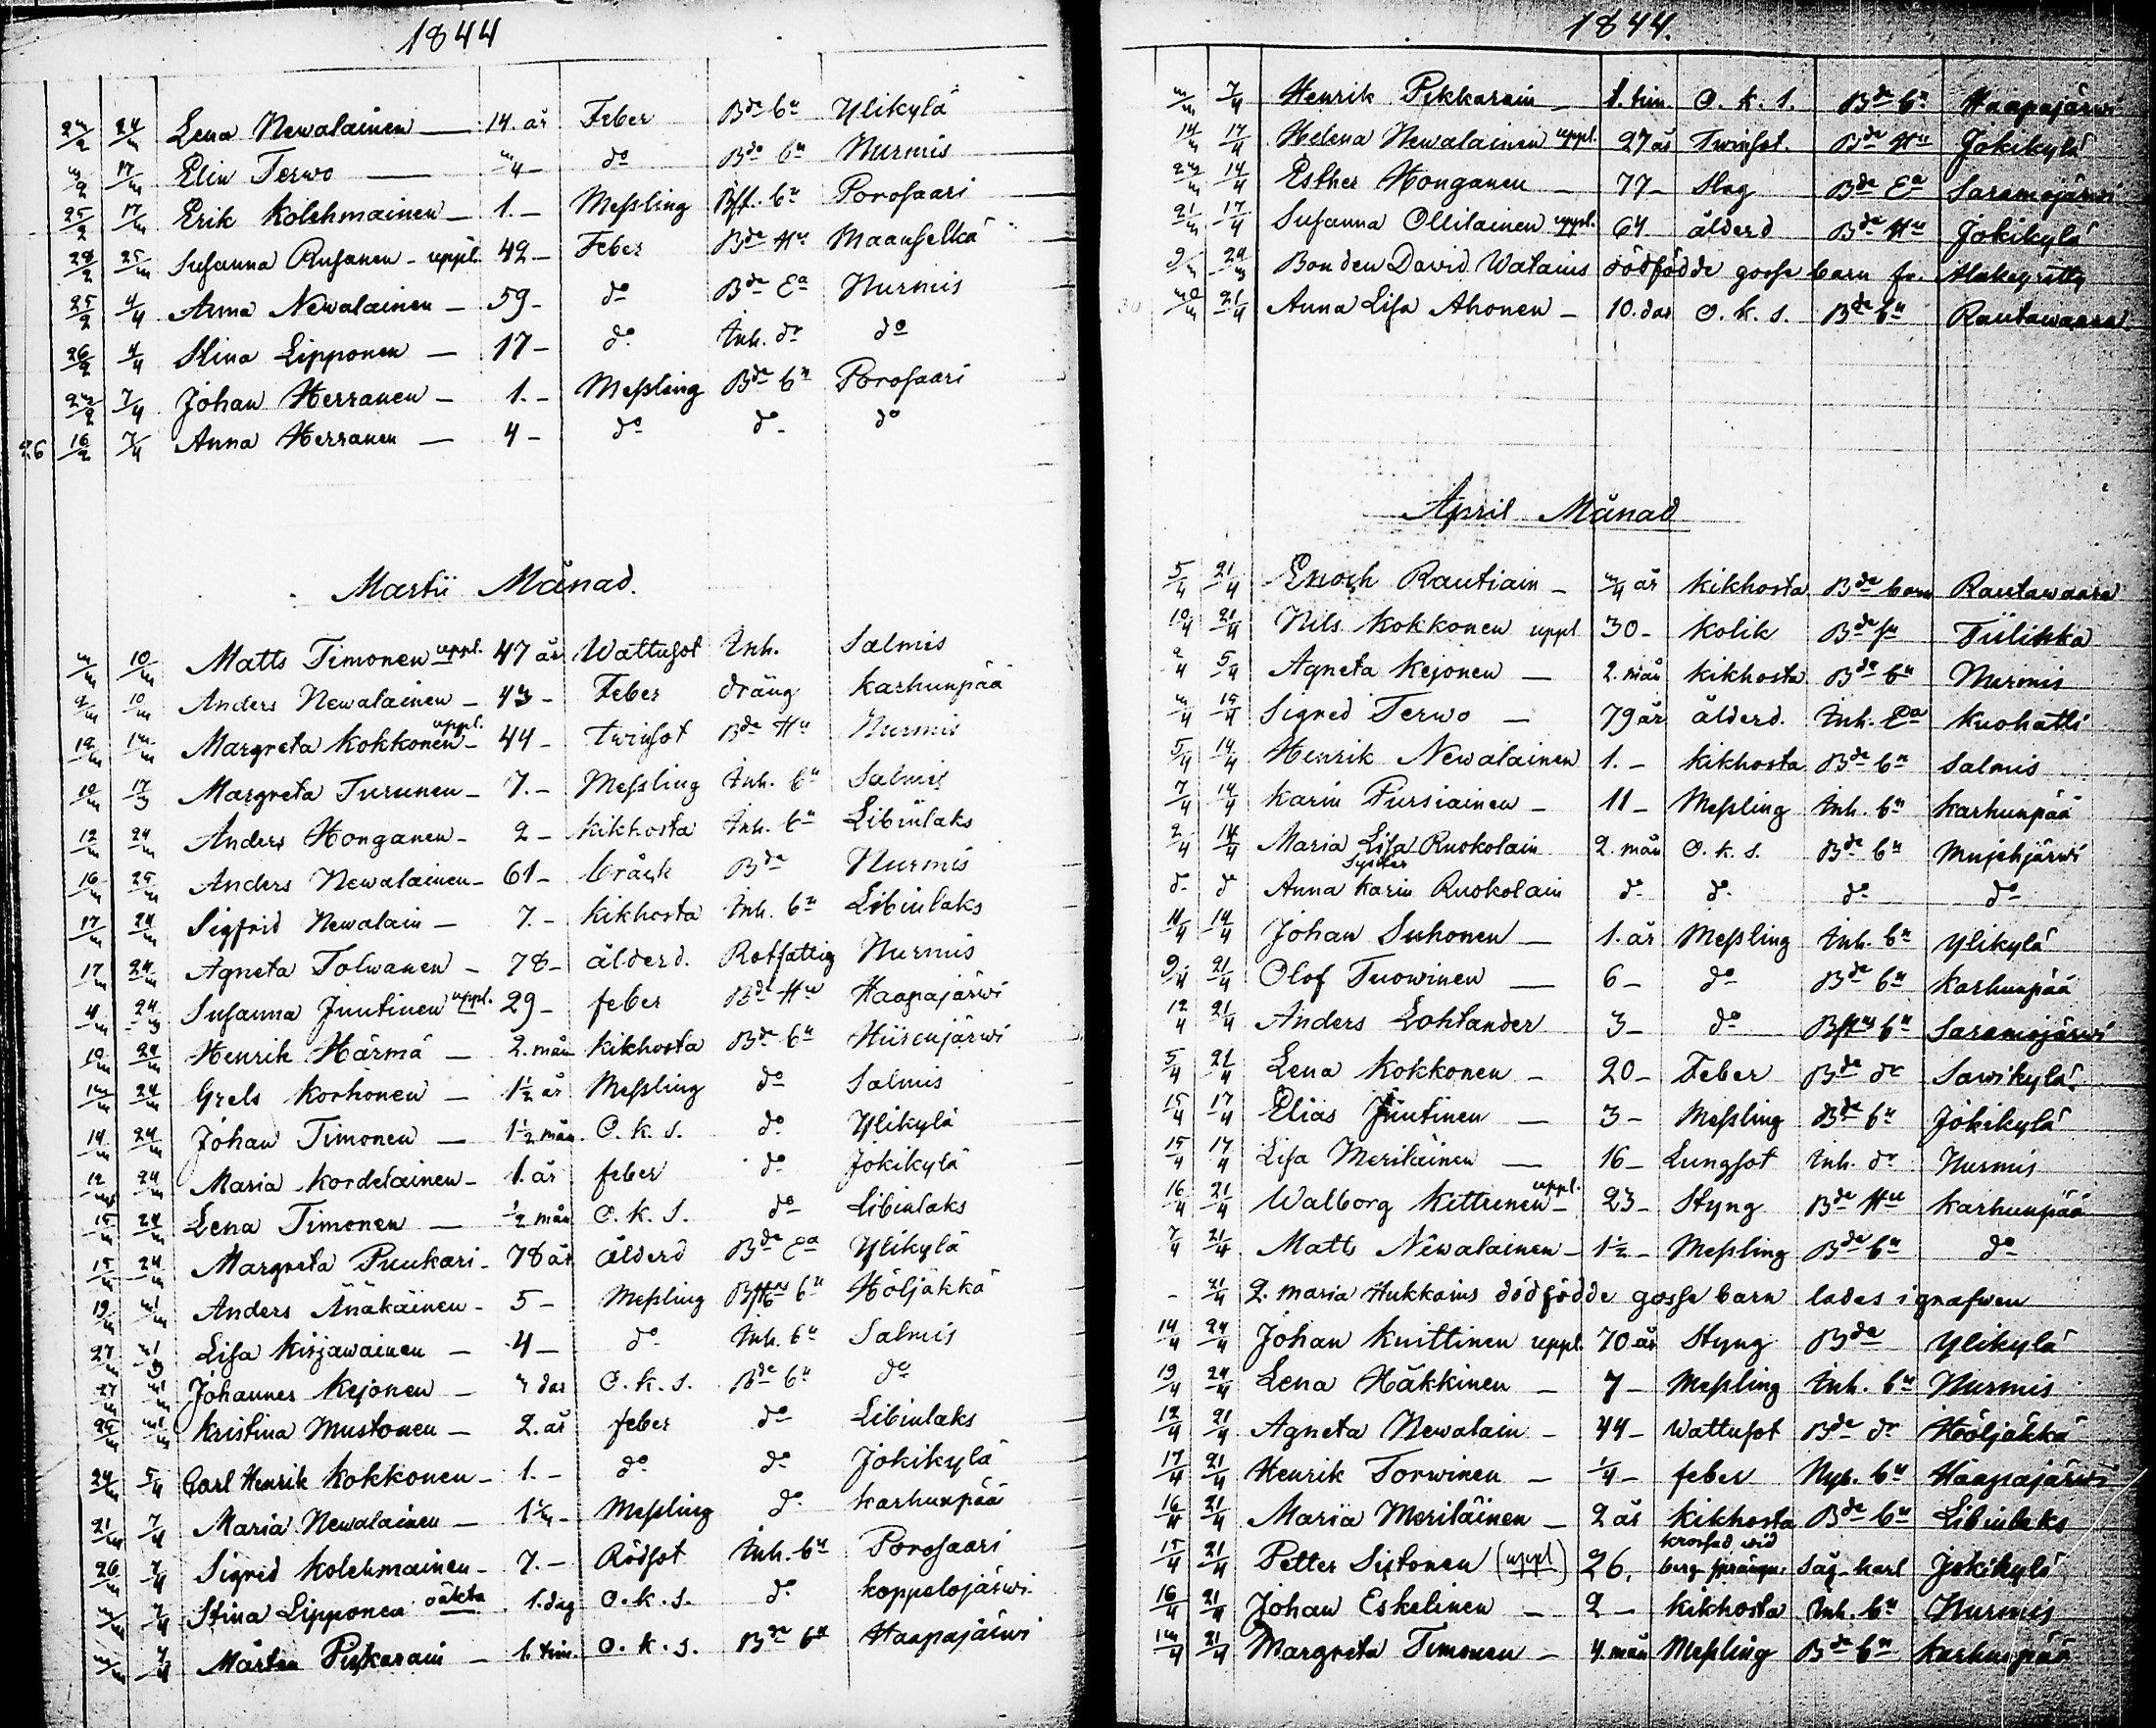 1844
Lena Newalainen — 14. år Feber Bde bn Ylikylä
Elin Terwo — 3/4 - do Bde bn Nurmis
25/2 17/3 Erik Kolehmainen — 1. - Messling bn Porosaari
28/2 25/3 Susanna Rusanen - uppl. 42 - Feber Bde Hu Maanselkä
25/2 4/4 Anna Newalainen — 59 - do Bde Ea Nurmis
26/2 4/4 Stina Lipponen — 17 - do Inh. dr do
23/2 7/4 Johan Herranen — 1. - Messling Bde bn Porosaari
26 16/2 7/4 Anna Herranen — 4 - do do do
Martii Månad.
3/3 10/3 Matts Timonen uppl. 47 år Wattusot Inh. Salmis
10/3 Anders Newalainen — 43 - Feber dräng Karhunpää
Margreta Kokkonen uppl. — 44 - twinsot Bde Hu Nurmis
10/3 17/3 Margreta Turunen — 7. - Messling Inh. bn Salmis
12/3 24/3 Anders Honganen — 2 - Kikhosta Inh. bn Libinlaks
16/3 25/3 Anders Newalainen — 61 - bråck Bde Nurmis
17/3 24/3 Sigfrid Newalain — 7. - Kikhosta Inh. bn Libinlaks
17/3 24/3 Agneta Tolwanen — 78 - ålderd. Rotfattig Nurmis
4/3 24/3 Susanna Juutinen uppl. 29 - feber Bde Hu Haapajärwi
10/3 24/3 Henrik Härmä — 2. mån Kikhosta Bde bn Hiirenjärwi
13/3 24/3 Grels Korhonen — 1½ år Messling do Salmis
14/3 24/3 Johan Timonen — 1½ mån. O. k. s. do Ylikylä
12/3 24/3 Maria Kordelainen — 1. år feber do Jokikylä
15/3 24/3 Lena Timonen — ½ mån O. k. s. do Libinlaks
15/3 24/3 Margreta Puukari — 78 år ålderd Bde Ea Ylikylä
19/3 31/3 Anders Änäkäinen — 5 - Messling bn Höljäkkä
27/3 31/3 Lisa Kirjawainen — 4 - do Inh. bn Salmis
27/3 31/3 Johannes Kejonen — 3 dar O. k. s. Bde bn do
25/3 31/3 Kristina Mustonen — 2. år feber do Libinlaks
24/3 5/4 Carl Henrik Kokkonen — 1. - do do Jokikylä
21/3 7/4 Maria Newalainen — Messling do Karhunpää
26/3 7/4 Sigrid Kolehmainen — 7. - Rödsot Inh. bn Porosaari
7/4 Stina Lipponen oäkta 1. dag O. k. s. do Koppelojärwi
7/4 Mårten Pikkarain — 1 tim. O. k. s. Bde bn Haapajärwi
1844.
7/4 Henrik Pikkarain — 1. tim O. k. s. Bde bn Haapajärwi
14/3 17/4 Helena Newalainen uppl. 27 år Twinsot. Bde Hu Jokikylä
23/3 14/4 Esther Honganen — 77 - Slag Bde Ea Saramojärwi
21/3 17/4 Susanna Ollilainen uppl. 64 ålderd Bde Hu Jokikylä
Bonden David Watains dödfödde gosse barn fr.
30 21/4 Anna Lisa Ahonen — 10. dar O. k. s. Bde bn Rautawaara
April Månad
5/4 21/4 Enoch Rautiain — 3/4 år Kikhosta Bde barn Rautawaara
10/4 21/4 Nils Kokkonen uppl 30 - Kolik Bde Tiilikka
2/4 5/4 Agneta Kejonen — 2. mån Kikhosta Bde bn Nurmis
3/4 15/4 Sigred Terwo — 79 år ålderd. Inh. Ea Kuohatti
5/4 14/4 Henrik Newalainen 1. - Kikhosta Bde bn Salmis
7/4 14/4 Karin Pursiainen — 11 - Messling Inh. bn Karhunpää
2/4 14/4 Maria Lisa Ruokolain 2. mån O. k. s. Bde bn Mujehjärwi
syster
do do Anna Karin Ruokolain do do do do
11/4 14/4 Johan Suhonen — 1. år Messling Inh. bn Ylikylä
9/4 21/4 Olof Tuowinen — 6 - do Bde bn Karhunpää
12/4 21/4 Anders Lohlander 3 - do bn Saramojärwi
5/4 21/4 Lena Kokkonen — 20 - Feber Bde dr Sawikylä.
15/4 17/4 Elias Juutinen — 3 - Messling Bde bn Jokikylä
15/4 17/4 Lisa Meriläinen — 16 - Lungsot Inh. dr Nurmis
16/4 21/4 Walborg Kettunen uppl. — 23 - Styng Bde Hu Karhunpää
7/4 21/4 Matts Newalainen — 1½ - Messling Bde bn do
- 21/4 Q. Maria Hukkains dödfödde gosse barn lades i grafwen
14/4 24/4 Johan Knittinen uppl. 70 år Styng Bde Ylikylä
19/4 24/4 Lena Häkkinen — 7 - Messling Inh. bn Nurmis
12/4 21/4 Agneta Newalain — 44 - Wattusot Bde dr Höljäkkä
17/4 21/4 Henrik Torwinen — 1/4 - feber Nyb. bn Haapajärwi
16/4 21/4 Maria Meriläinen — 2 år Kikhosta Bde bn Libinlaks
15/4 21/4 Petter Sistonen (uppl) 26. krossad wid berg sprängn. Såg-karl Jokikylä
16/4 21/4 Johan Eskelinen — 2 - Kikhosta Inh. bn Nurmis
13/4 21/4 Margreta Timonen — 4. mån Messling Bde bn Karhunpää